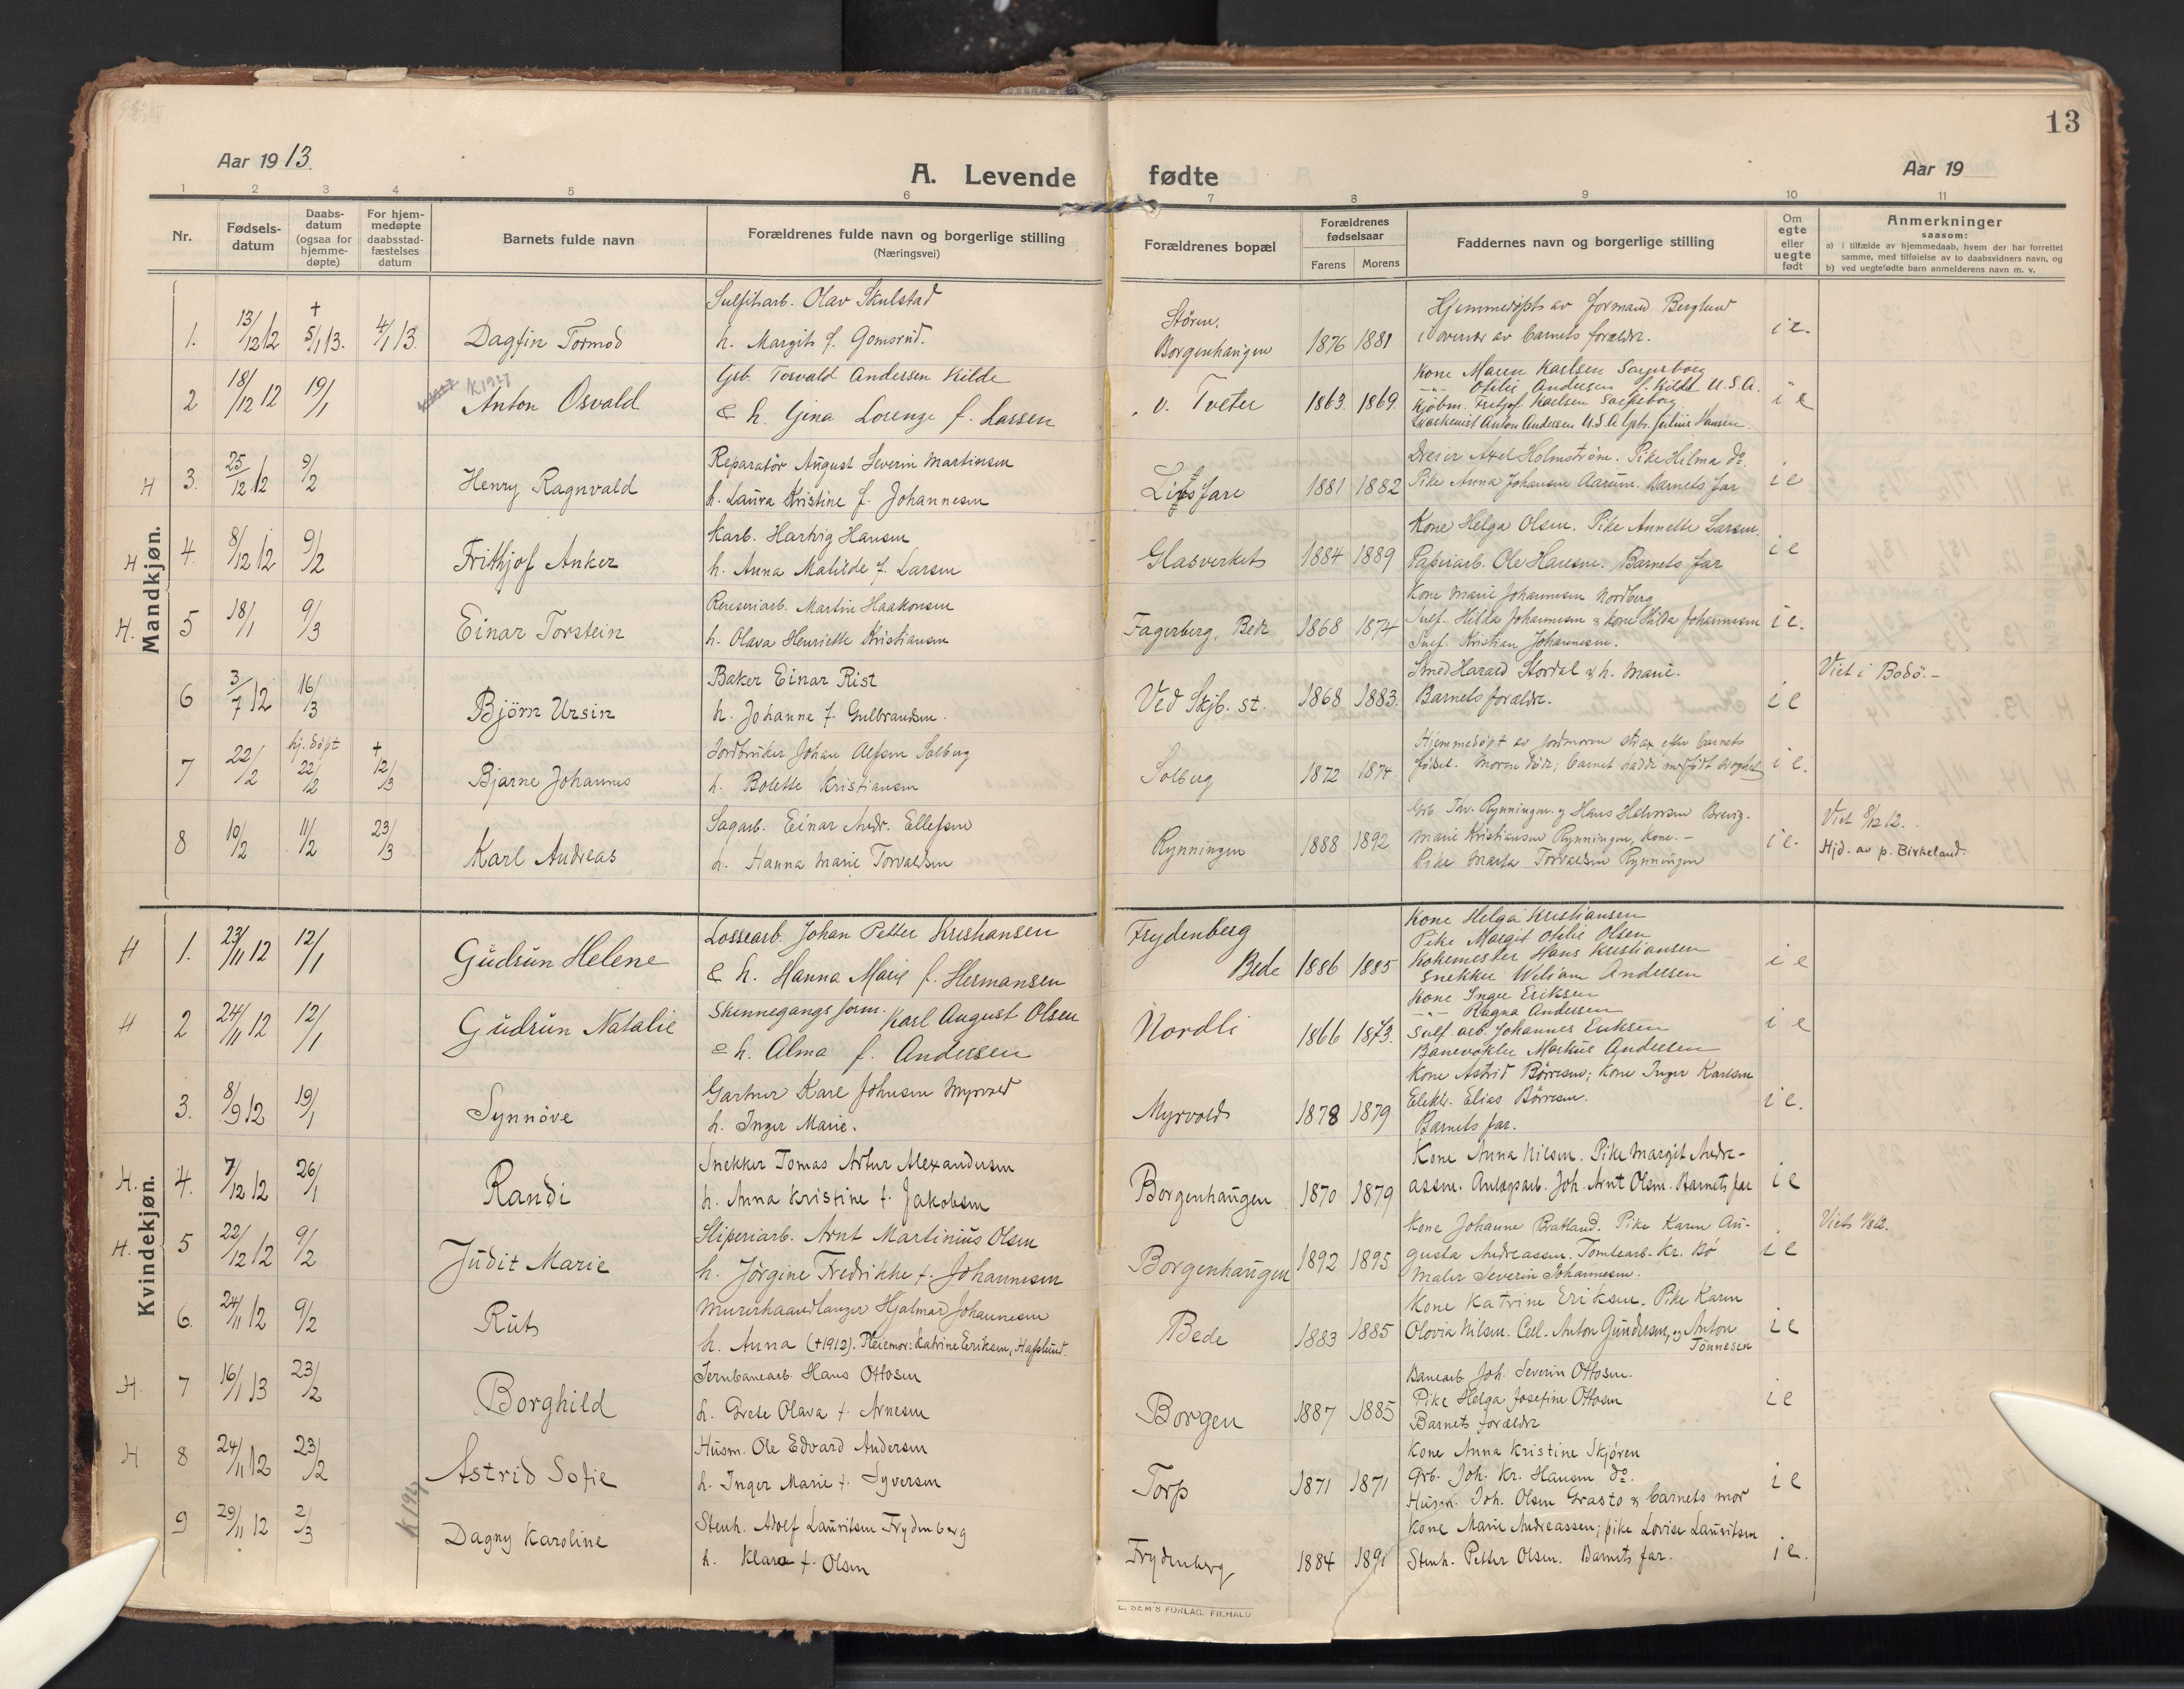 13
Aar 1913.
A. Levende fødte
Aar 19
1 2 3 4 5 6 7 8 9 10 11
Nr.
Fødsels-
datum
Daabs-
datum
(ogsaa for
hjemme-
døpte)
For hjem-
medøpte
daabsstad-
fæstelses
datum
Barnets fulde navn
Forældrenes fulde navn og borgerlige stilling
(Næringsvei)
Forældrenes bopæl
Forældrenes
fødselsaar
Farens Morens
Faddernes navn og borgerlige stilling
Om
egte
eller
uegte
født
Anmerkninger
saasom:
a) i tilfælde av hjemmedaab, hvem der har forrettet
samme, med tilføielse av to daabsvidners navn, og
b) ved uegtefødte barn anmelderens navn m. v.
Mandkjøn.
1. 13/12 12 † 5/1 13. 4/1 13. Dagfin Tormod
Sulfitarb. Olav Skulstad
h. Margit f. Gomsrud.
Stören.
Borgenhaugen 1876 1881
Hjemmedøpt av Jormand Berglund
i overvær av barnets forældre.
i e.
2 18/12 12 19/1 K1927 Anton Osvald
Grb. Torvald Andersen Kilde
& h. Gina Lorense f. Larsen
v. Tveter 1863. 1869.
Kone Maren Karlsen Sarpsborg
-"- Otilie Andersen f. Kilde U.S.A.
Kjøbm. Fritjof Karlsen Sarpsborg
Anton Andersen U.S.A. Grb. Julius Hansen
i e
H 3. 25/12 12 9/2 Henry Ragnvald
Reparatör August Severin Martinsen
h. Laura Kristine f. Johannesen
1881 1882
Axel Holmstrøm. Pike Hilma do.
Pike Anna Johansen Aarum. Barnets far
i e
H 4. 8/12 12 9/2 Frithjof Anker
Karb. Hartvig Hansen
h. Anna Matilde f. Larsen
Glasverket 1884 1889
Kone Helga Olsen. Pike Annette Larsen.
Papirarb. Ole Hansen. Barnets far
i e
H. 5 18/1 9/3 Einar Torstein
Renseriarb. Martin Haakonsen
h. Olava Henriette Kristiansen
Fagerberg, Bede 1868 1874
Kone Marie Johannesen Nordberg
Sulf. Hilda Johannesen & kone Hilda Johannesen
Sulf. Kristian Johannesen.
i e.
6 3/7 12 16/3 Björn Ursin
Baker Einar Rist
h. Johanna f. Gulbrandsen.
Ved Skjb. st. 1868 1883.
Smed Harald Stordal & h. Marie.
Barnets forældre.
i e
Viet i Bodö. -
7 22/2 hj. döpt 22/2 † 12/3 Bjarne Johannes
Jordbruker Johan Alfsen Solberg
h. Bolette Kristiansen
Solberg 1872 1874.
Hjemmedöpt av jordmoren strax efter barnets
födsel. Moren död; barnet
i e.
8 10/2 11/2 23/3 Karl Andreas
Sagarb. Einar Andr. Ellefsen
h. Hanna Marie Torvaldsen
Rynningen 1888 1892
Grb. Thv. Rynningen og Hans Halvorsen Brevig.
Marie Kristiansen Rynningen, kone. -
Pike Marta Torvaldsen Rynningen
i e.
Viet 8/12 12.
Hjd. av p. Birkeland.
Kvindekjøn.
H 1. 23/11 12 12/1 Gudrun Helene
Lossearb. Johan Petter Kristiansen
& h. Hanna Marie f. Hermansen
Frydenberg
Bede 1886 1885
Kone Helga Kristiansen
Pike Margit Otilie Olsen
Kokemester Hans Kristiansen
Snekker Wiliam Andersen
i e
H 2 24/11 12 12/1 Gudrun Natalie
Skinnegangsform. Karl August Olsen
& h. Alma f. Andersen
Nordli 1866 1873.
Kone Inga Eriksen
-"- Ragna Andersen
Sulf. arb. Johannes Eriksen
Banevokter Markus Andersen
i e
3. 8/9 12 19/1 Synnöve
Gartner Karl Johnsen Myrvold
h. Inger Marie.
Myrvold 1878 1879
Kone Astrid Börresen; kone Inger Karlsen
Elektr. Elias Börresen.
Barnets far.
i e.
H. 4. 7/12 12 26/1 Randi
Snekker Tomas Artur Alexandersen
h. Anna Kristine f. Jakobsen
Borgenhaugen 1870 1879
Kone Anna Nilsen. Pike Margit Andre-
assen. Anlægsarb. Joh. Arnt Olsen. Barnets far
i e
H. 5 22/12 12 9/2 Judit Marie
Sliperiarb. Arnt Martinius Olsen
h. Jörgine Fredrikke f. Johannesen
Borgenhaugen 1892 1895
Kone Johanne Bratland. Pike Karen Au-
gusta Andreassen. Tomtearb. Kr. Bö
Maler Severin Johannesen.
i e
6. 24/11 12 9/2 Rut
Murerhaandlanger Hjalmar Johannesen
h. Anna (†1912). Pleiemor: Katrine Eriksen, Hafslund.
Bede 1883 1885
Kone Katrine Eriksen. Pike Karen
Olovia Nilsen. Cell. Anton Gundersen, og Anton
Tönnesen
i e
H. 7 16/1 13 23/2 Borghild
Jernbanearb. Hans Ottosen
h. Grete Olava f. Arnesen
Borgen 1887 1885
Banearb. Joh. Severin Ottosen.
Pike Helga Josefine Ottosen
Barnets forældre
i e
H 8 24/11 12 23/2 Astrid Sofie
Husm. Ole Edvard Andersen
h. Inger Marie f. Syversen
Torp 1871 1871
Kone Anna Kristine Skjören
Grb. Joh. Kr. Hansen do.
Husm. Joh. Olsen & barnets mor
i e
9 29/11 12 2/3 K 1927 Dagny Karoline
Stenh. Adolf Lauritsen Frydenberg
h. Klara f. Olsen
Frydenberg 1884 1891
Kone Marie Andreassen; pike Lovise Lauritsen
Stenh. Petter Olsen. Barnets far.
i e.
E. SEM'S FORLAG, FR.HALD